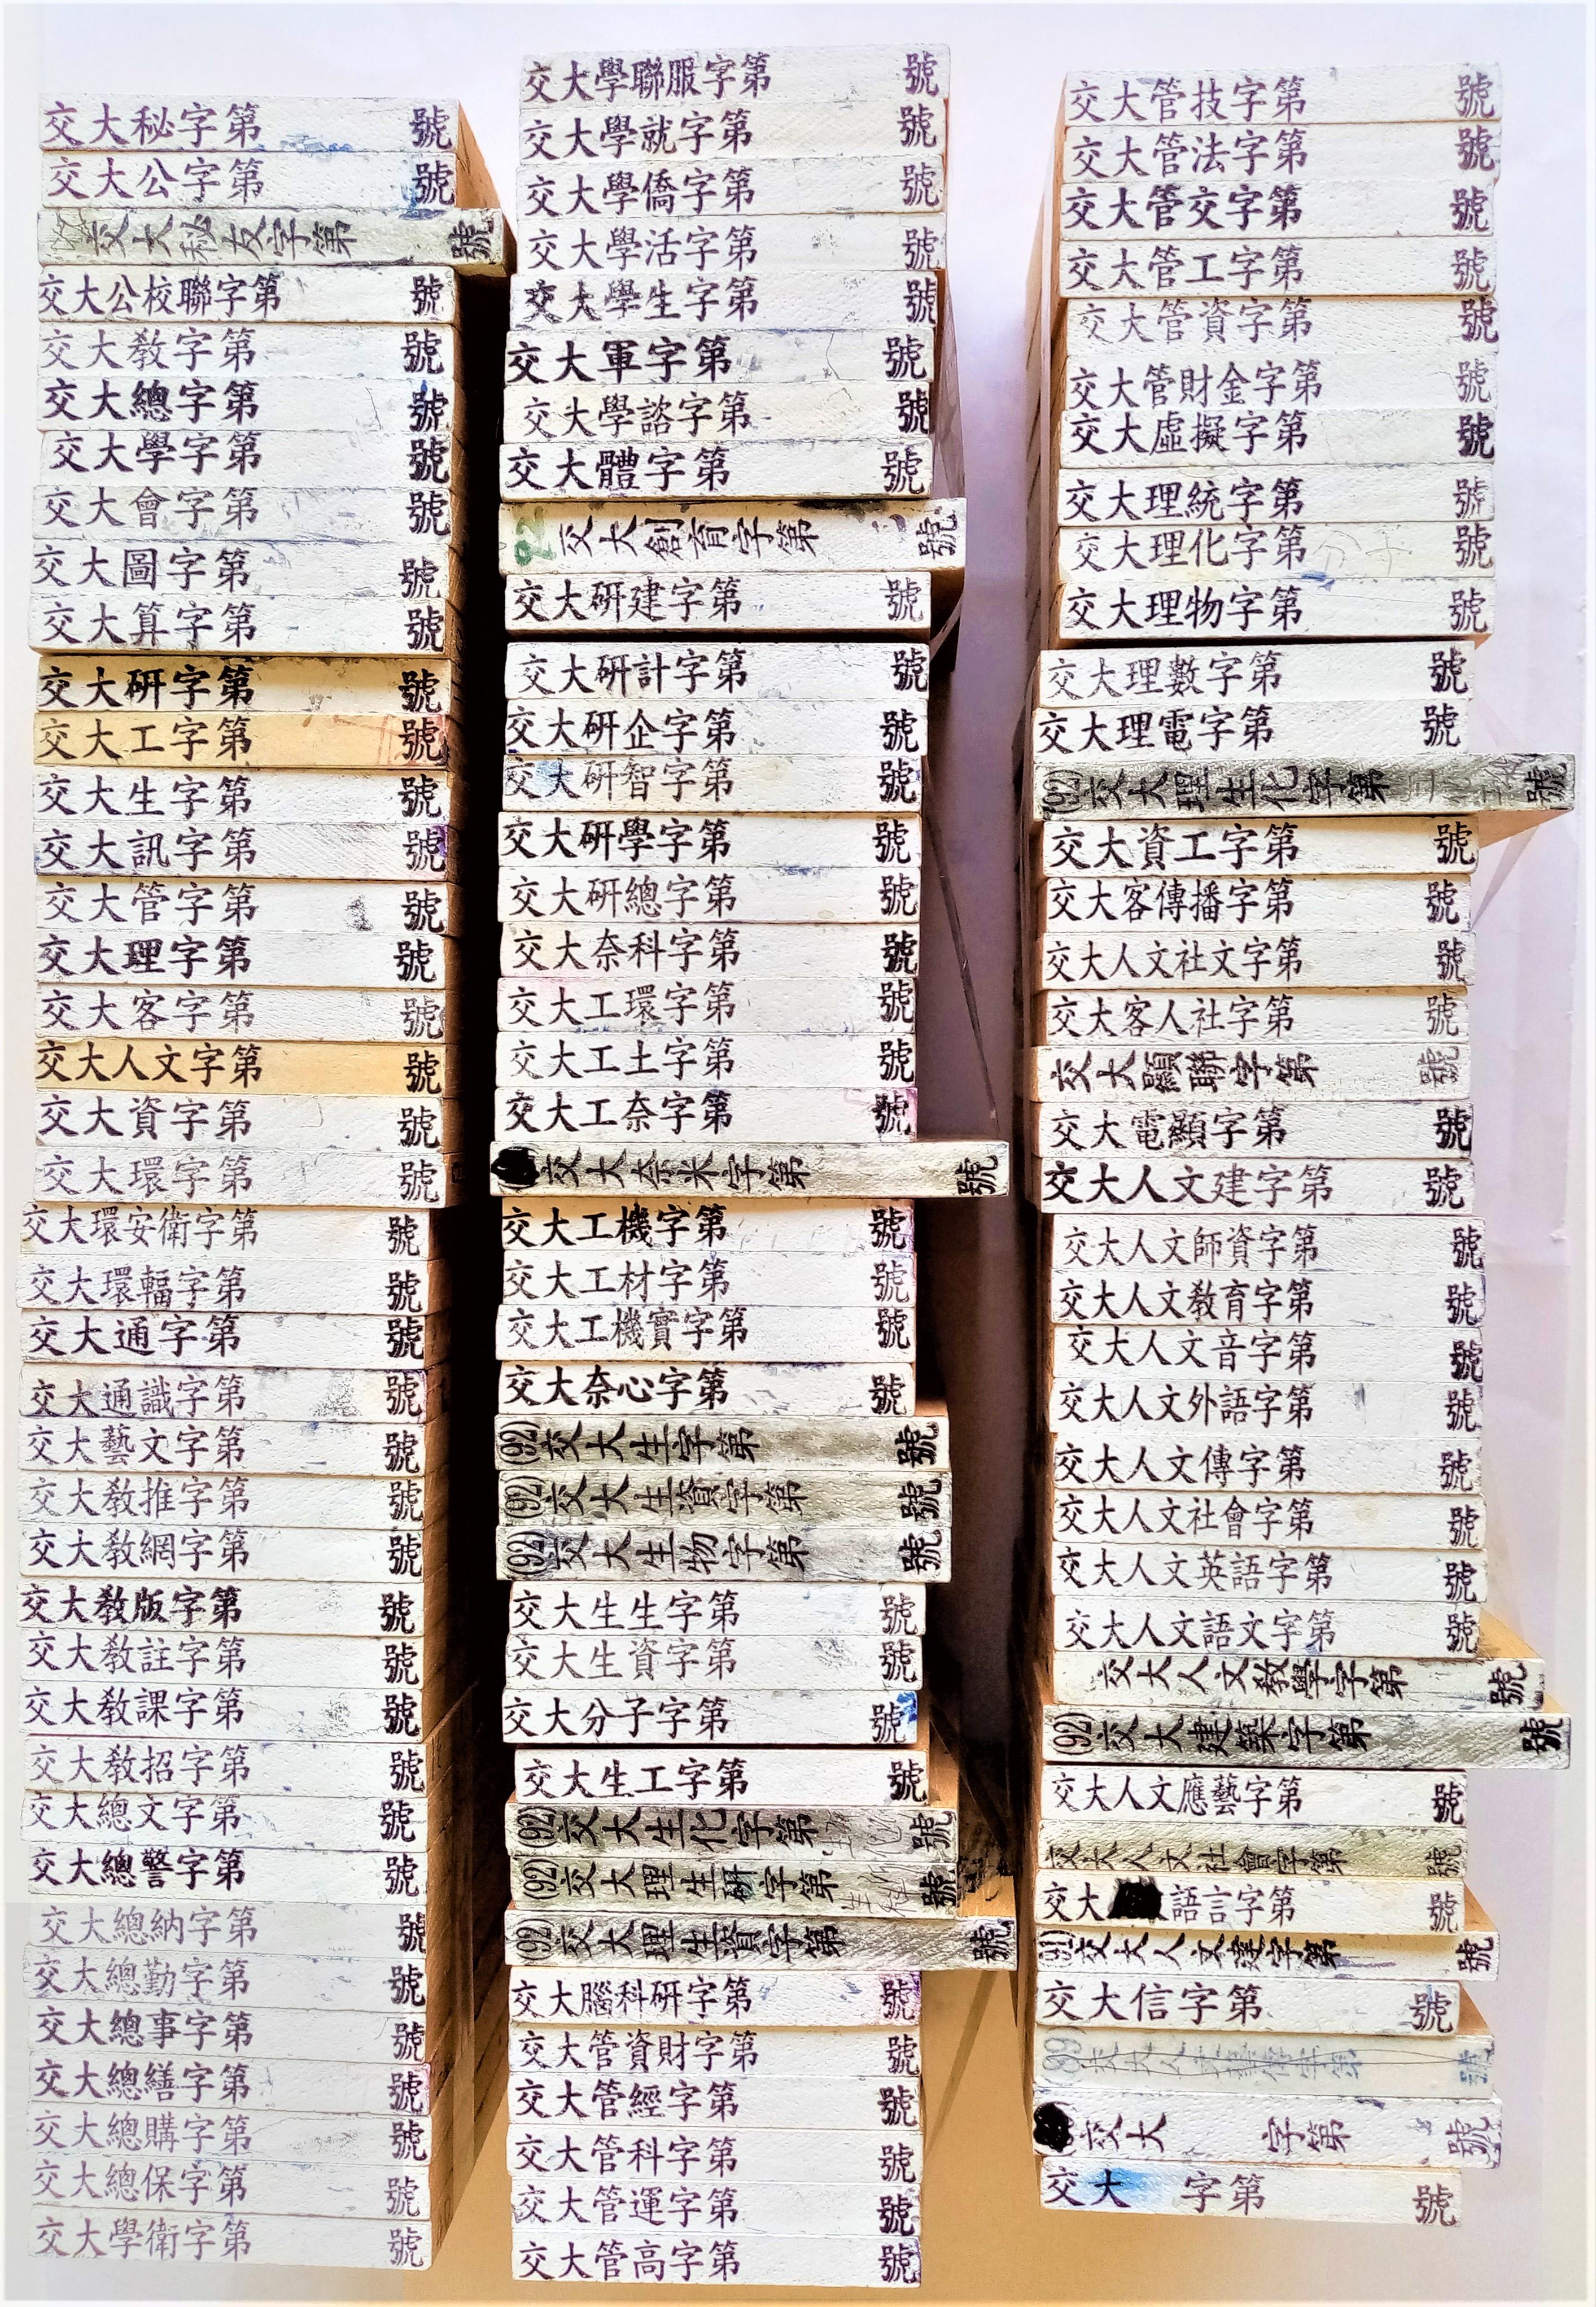 交大秘字第 號
交大公字第 號
交大秘友字第 號
交大公校聯字第 號
交大教字第 號
交大總字第 號
交大學字第 號
交大會字第 號
交大圖字第 號
交大算字第 號
交大研字第 號
交大工字第 號
交大生字第 號
交大訊字第 號
交大管字第 號
交大理字第 號
交大客字第 號
交大人文字第 號
交大資字第 號
交大環字第 號
交大環安衛字第 號
交大環輻字第 號
交大通字第 號
交大通識字第 號
交大藝文字第 號
交大教推字第 號
交大教網字第 號
交大教版字第 號
交大教註字第 號
交大教課字第 號
交大教招字第 號
交大總文字第 號
交大總警字第 號
交大總納字第 號
交大總勤字第 號
交大總事字第 號
交大總繕字第 號
交大總購字第 號
交大總保字第 號
交大學衛字第 號
交大學聯服字第 號
交大學就字第 號
交大學僑字第 號
交大學活字第 號
交大學生字第 號
交大軍字第 號
交大學諮字第 號
交大體字第 號
92 交大創育字第 號
交大研建字第 號
交大研計字第 號
交大研企字第 號
交大研智字第 號
交大研學字第 號
交大研總字第 號
交大奈科字第 號
交大工環字第 號
交大工土字第 號
交大工奈字第 號
交大奈米字第 號
交大工機字第 號
交大工材字第 號
交大工機實字第 號
交大奈心字第 號
(92)交大生字第 號
(92)交大生資字第 號
(92)交大生物字第 號
交大生生字第 號
交大生資字第 號
交大分子字第 號
交大生工字第 號
(92)交大生化字第 號
(92)交大理生研字第 號
(92)交大理生資字第 號
交大腦科研字第 號
交大管資財字第 號
交大管經字第 號
交大管科字第 號
交大管運字第 號
交大管高字第 號
交大管技字第 號
交大管法字第 號
交大管交字第 號
交大管工字第 號
交大管資字第 號
交大管財金字第 號
交大虛擬字第 號
交大理統字第 號
交大理化字第 號
交大理物字第 號
交大理數字第 號
交大理電字第 號
(92)交大理生化字第 號
交大資工字第 號
交大客傳播字第 號
交大人文社文字第 號
交大客人社字第 號
交大顯聯字第 號
交大電顯字第 號
交大人文建字第 號
交大人文師資字第 號
交大人文教育字第 號
交大人文音字第 號
交大人文外語字第 號
交大人文傳字第 號
交大人文社會字第 號
交大人文英語字第 號
交大人文語文字第 號
交大人文教學字第 號
(92)交大建築字第 號
交大人文應藝字第 號
交大人文社會字第 號
交大 語言字第 號
(91)交大人文建字第 號
交大信字第 號
(89) 號
交大 字第 號
交大 字第 號